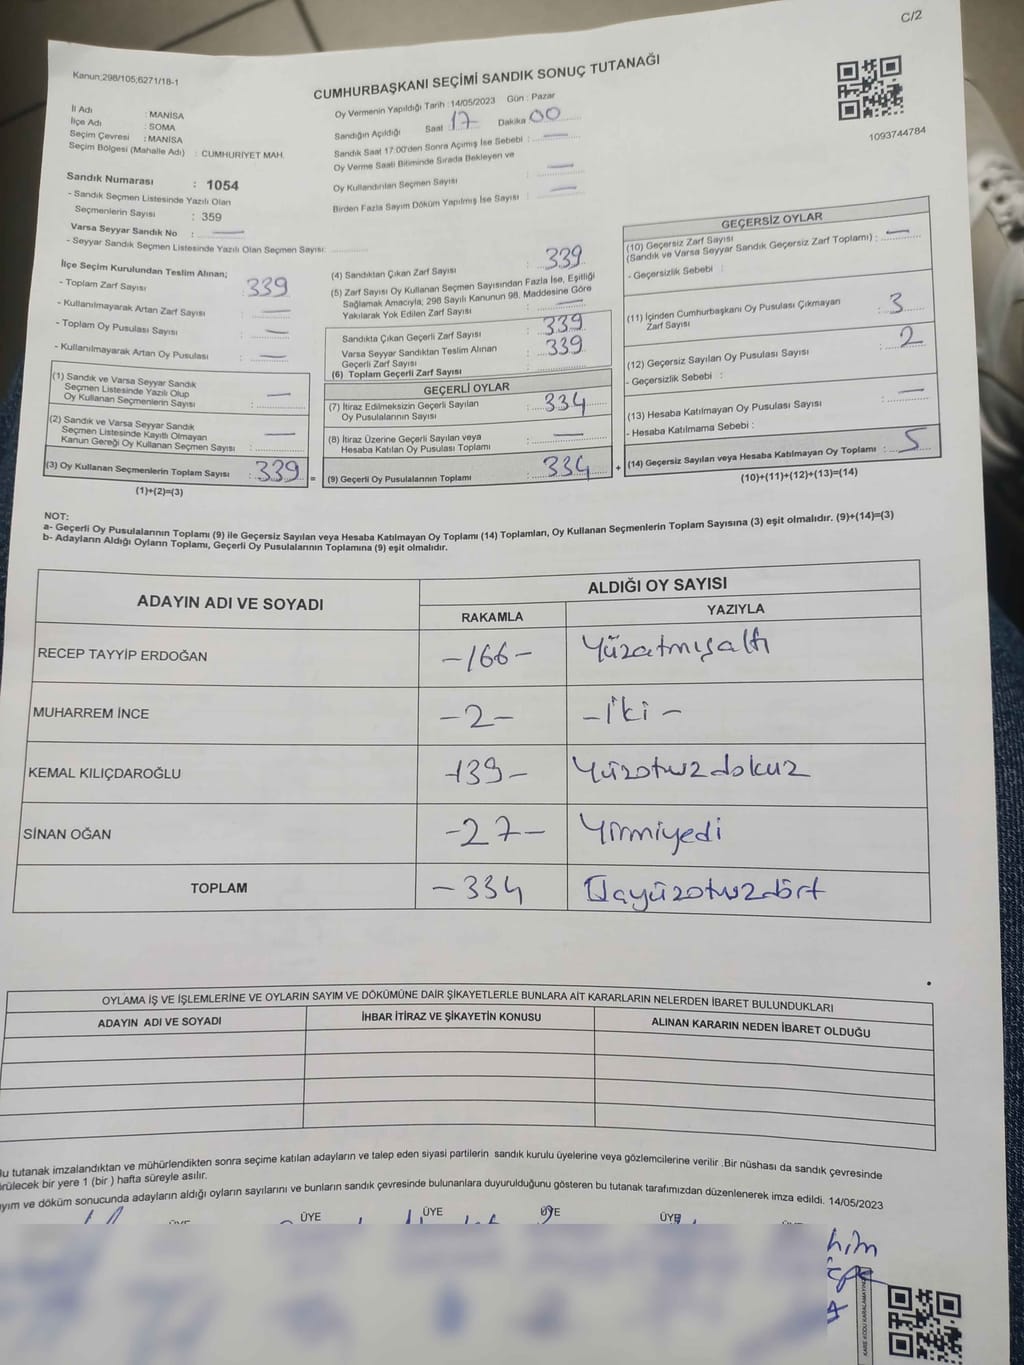 C/2
Kanun;298/105;6271/18-1
CUMHURBAŞKANI SEÇİMİ SANDIK SONUÇ TUTANAĞI
1093744784
İl Adı : MANİSA
İlçe Adı : SOMA
Seçim Çevresi : MANİSA
Seçim Bölgesi (Mahalle Adı) : CUMHURIYET MAH.
Oy Vermenin Yapıldığı Tarih : 14/05/2023 Gün : Pazar
Sandığın Açıldığı Saat 17 Dakika 00
Sandık Saat 17:00'den Sonra Açımış İse Sebebi : —
Oy Verme Saati Bitiminde Sırada Bekleyen ve
Oy Kullandırılan Seçmen Sayısı : —
Birden Fazla Sayım Döküm Yapılmış İse Sayısı : —
Sandık Numarası : 1054
- Sandık Seçmen Listesinde Yazılı Olan
Seçmenlerin Sayısı : 359
Varsa Seyyar Sandık No : —
- Seyyar Sandık Seçmen Listesinde Yazılı Olan Seçmen Sayısı:
İlçe Seçim Kurulundan Teslim Alınan;
- Toplam Zarf Sayısı : 339
- Kullanılmayarak Artan Zarf Sayısı : —
- Toplam Oy Pusulası Sayısı : —
- Kullanılmayarak Artan Oy Pusulası : —
(1) Sandık ve Varsa Seyyar Sandık
Seçmen Listesinde Yazılı Olup
Oy Kullanan Seçmenlerin Sayısı : —
(2) Sandık ve Varsa Seyyar Sandık
Seçmen Listesinde Kayıtlı Olmayan
Kanun Gereği Oy Kullanan Seçmen Sayısı : —
(3) Oy Kullanan Seçmenlerin Toplam Sayısı : 339 =
(1)+(2)=(3)
(4) Sandıktan Çıkan Zarf Sayısı : 339
(5) Zarf Sayısı Oy Kullanan Seçmen Sayısından Fazla İse, Eşitliği
Sağlamak Amacıyla; 298 Sayılı Kanunun 98. Maddesine Göre
Yakılarak Yok Edilen Zarf Sayısı : —
Sandıkta Çıkan Geçerli Zarf Sayısı : 339
Varsa Seyyar Sandıktan Teslim Alınan : 339
Geçerli Zarf Sayısı
(6) Toplam Geçerli Zarf Sayısı
GEÇERLİ OYLAR
(7) İtiraz Edilmeksizin Geçerli Sayılan
Oy Pusulalarının Sayısı : 334
(8) İtiraz Üzerine Geçerli Sayılan veya
Hesaba Katılan Oy Pusulası Toplamı : —
(9) Geçerli Oy Pusulalarının Toplamı : 334 +
GEÇERSİZ OYLAR
(10) Geçersiz Zarf Sayısı
(Sandık ve Varsa Seyyar Sandık Geçersiz Zarf Toplamı) : —
- Geçersizlik Sebebi :
(11) İçinden Cumhurbaşkanı Oy Pusulası Çıkmayan
Zarf Sayısı : 3
(12) Geçersiz Sayılan Oy Pusulası Sayısı : 2
- Geçersizlik Sebebi :
(13) Hesaba Katılmayan Oy Pusulası Sayısı : —
- Hesaba Katılmama Sebebi :
(14) Geçersiz Sayılan veya Hesaba Katılmayan Oy Toplamı : 5
(10)+(11)+(12)+(13)=(14)
NOT:
a- Geçerli Oy Pusulalarının Toplamı (9) ile Geçersiz Sayılan veya Hesaba Katılmayan Oy Toplamı (14) Toplamları, Oy Kullanan Seçmenlerin Toplam Sayısına (3) eşit olmalıdır. (9)+(14)=(3)
b- Adayların Aldığı Oyların Toplamı, Geçerli Oy Pusulalarının Toplamına (9) eşit olmalıdır.
ADAYIN ADI VE SOYADI
ALDIĞI OY SAYISI
RAKAMLA YAZIYLA
RECEP TAYYİP ERDOĞAN -166- Yüzatmışaltı
MUHARREM İNCE -2- -İki-
KEMAL KILIÇDAROĞLU -139- Yüzotuzdokuz
SİNAN OĞAN -27- Yirmiyedi
TOPLAM -334 Üçyüzotuzdört
OYLAMA İŞ VE İŞLEMLERİNE VE OYLARIN SAYIM VE DÖKÜMÜNE DAİR ŞİKAYETLERLE BUNLARA AİT KARARLARIN NELERDEN İBARET BULUNDUKLARI
ADAYIN ADI VE SOYADI İHBAR İTİRAZ VE ŞİKAYETİN KONUSU ALINAN KARARIN NEDEN İBARET OLDUĞU
Bu tutanak imzalandıktan ve mühürlendikten sonra seçime katılan adayların ve talep eden siyasi partilerin sandık kurulu üyelerine veya gözlemcilerine verilir .Bir nüshası da sandık çevresinde
örülecek bir yere 1 (bir ) hafta süreyle asılır.
ayım ve döküm sonucunda adayların aldığı oyların sayılarını ve bunların sandık çevresinde bulunanlara duyurulduğunu gösteren bu tutanak tarafımızdan düzenlenerek imza edildi. 14/05/2023
ÜYE ÜYE ÜYE ÜYE